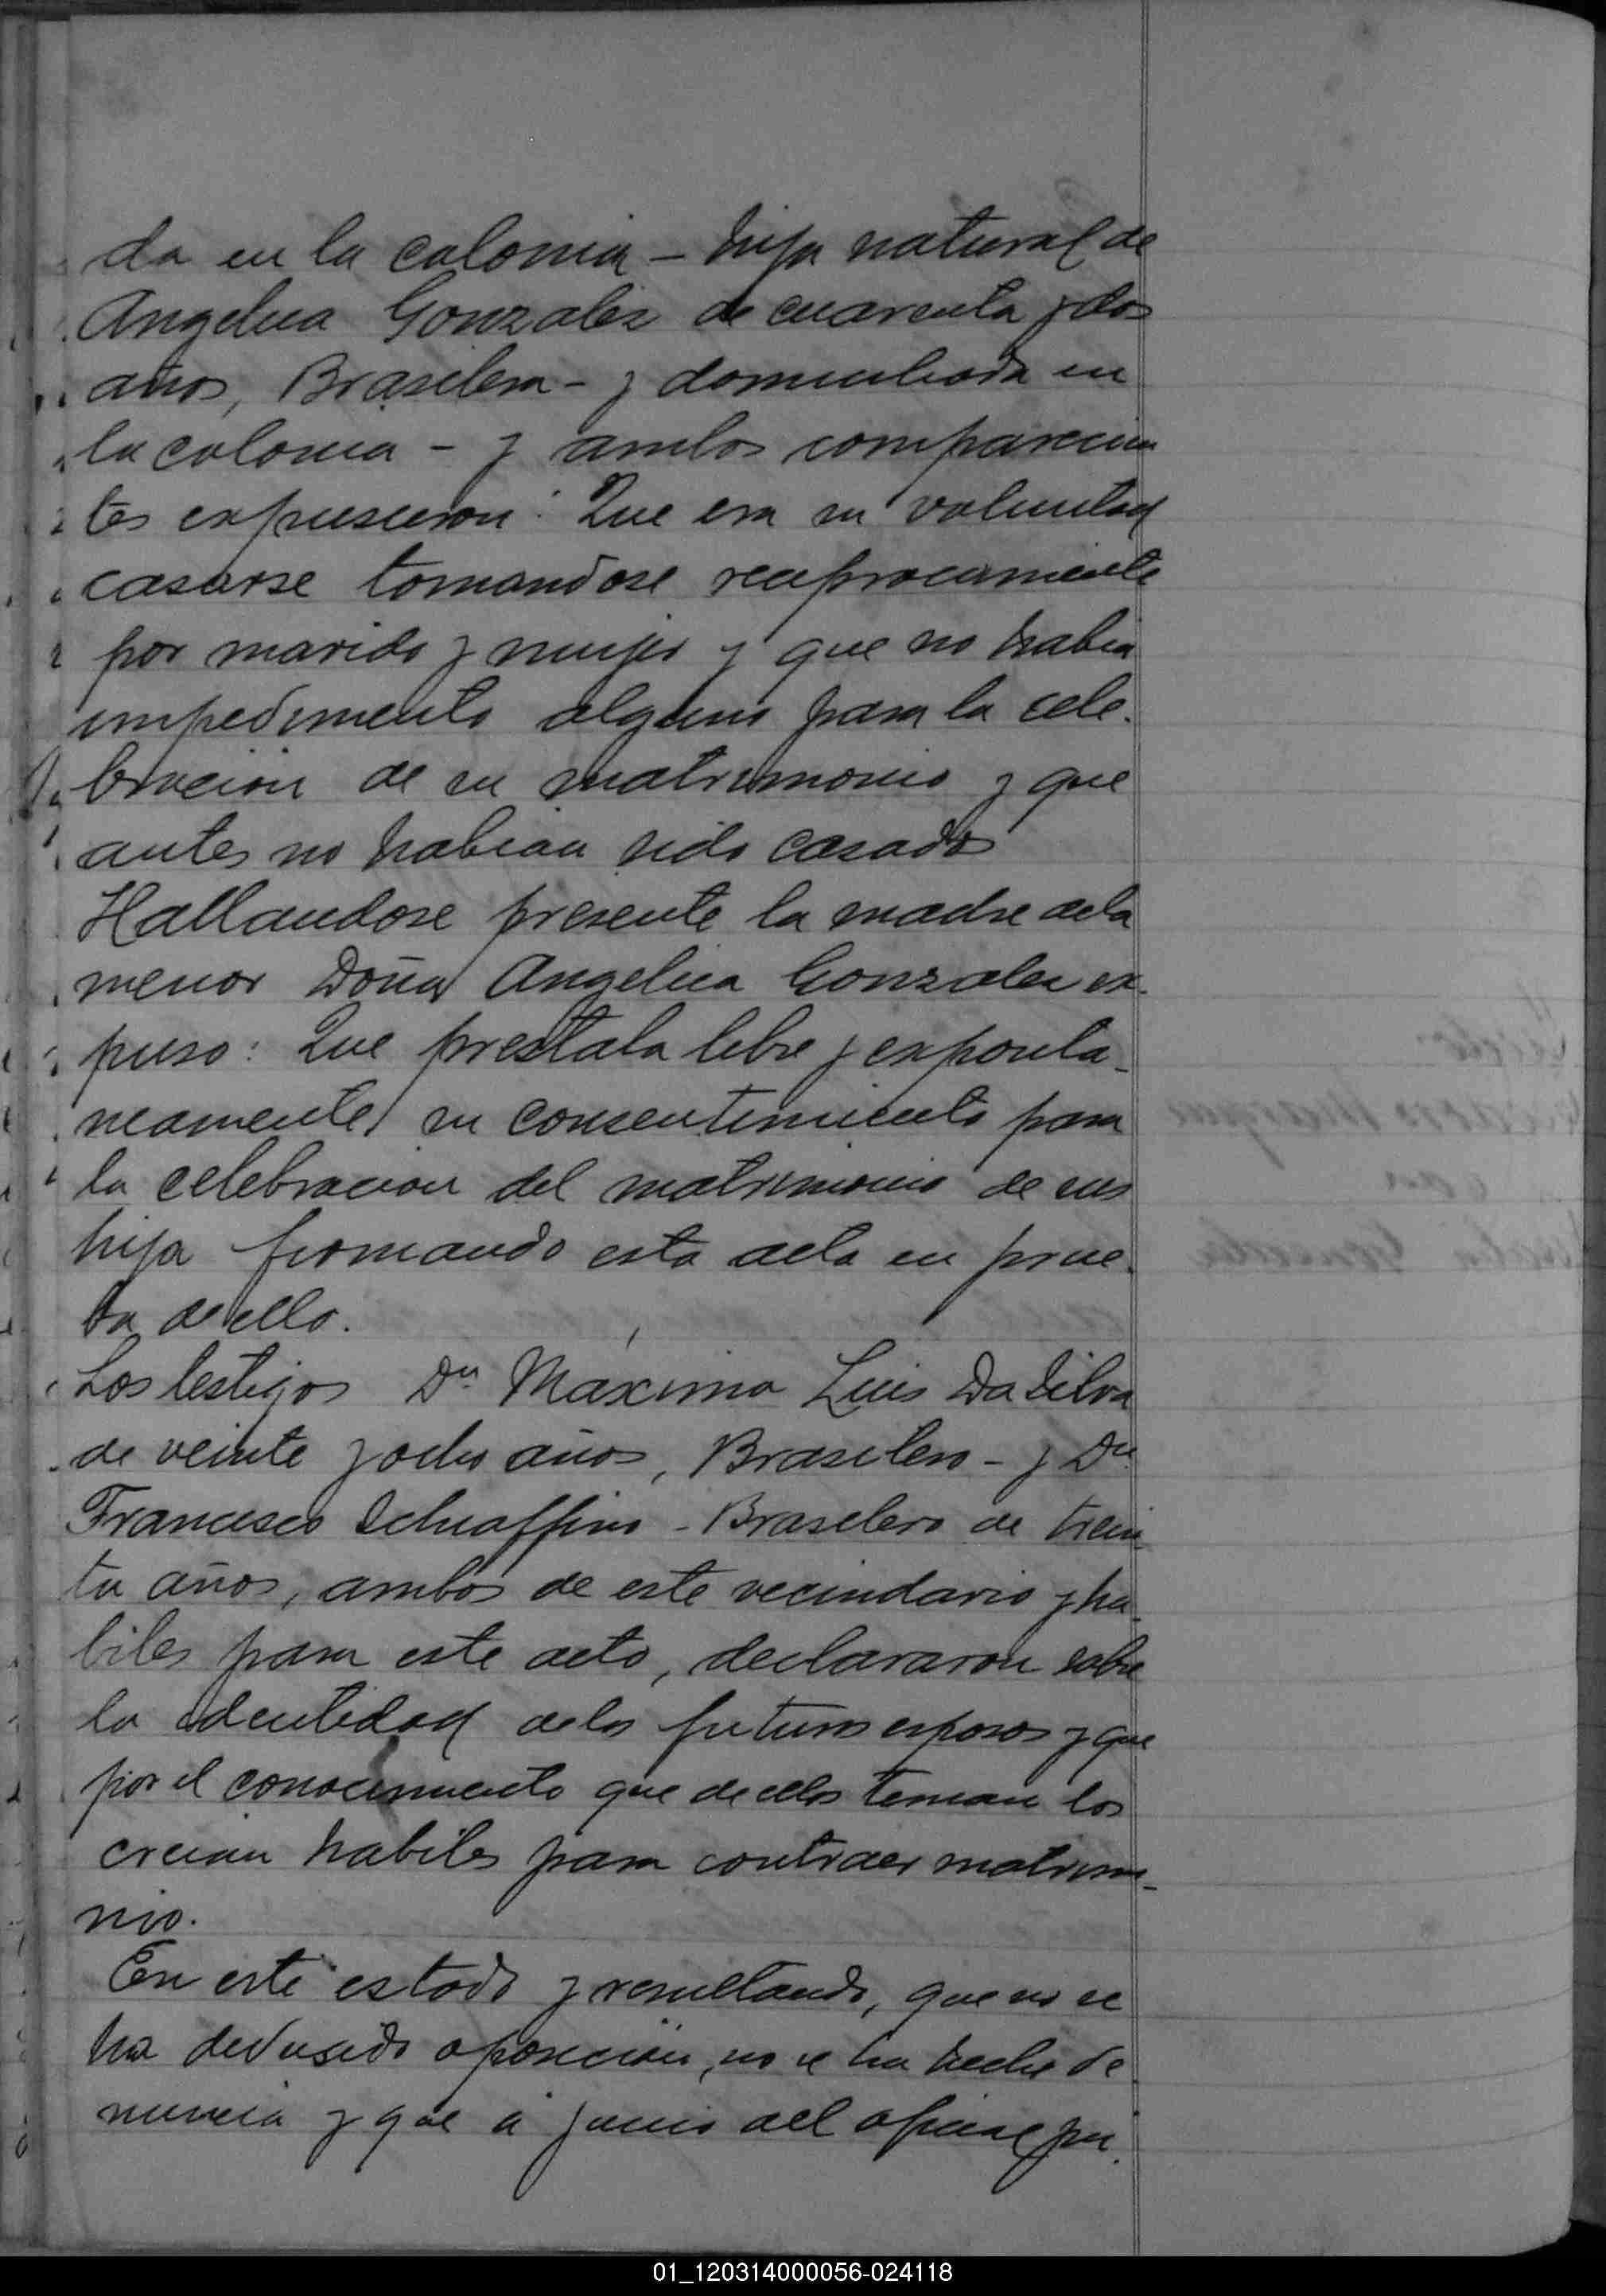 da en la colonia – hija natural de
Angelica Gonzalez de cuarenta y dos
años, Brasilera – y domiciliada en
la colonia – y ambos comparecien
tes expresaron: Que era su voluntad
casarse tomandose reciprocamente
por marido y mujer y que no habia
impedimento alguno para la cele-
bracion de su matrimonio y que
antes no habian sido casados
Hallandose presente la madre dela
menor Doña Angelica Gonzalez ex-
puso: Que prestaba libre y esponta-
neamente su consentimiento para
la celebracion del matrimonio de su
hija firmando esta acta en prue-
ba de ello.
Los testigos Dn Máximo Luis Da Silva
de veinte y ocho años, Brasilero – y Dn
Francisco Schiaffino – Brasilero de trein-
ta años, ambos de este vecindario y ha-
biles para este acto, declararon sobre
la identidad delos futuros esposos y que
por el conocimiento que de ellos tenian los
creian habiles para contraer matrimo-
nio.
En este estado y resultando, que no se
ha deducido oposicion, no se ha hecho de
nuncia y que á juicio del oficial pu-
01_120314000056-024118